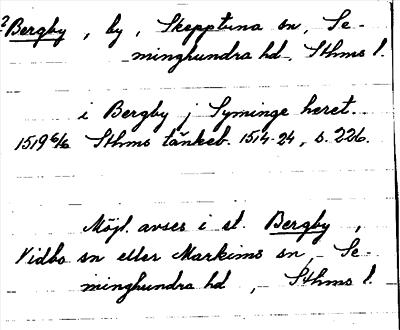 ? Bergby, by, Skepptuna sn, Se-
minghundra hd, Sthms l.
i Bergby j Syminge heret.
1519 6/6 Sthms tänkeb. 1514-24, s. 226.
Möjl. avses i st. Bergby,
Vidbo sn eller Markims sn, Se-
minghundra hd, Sthms l.